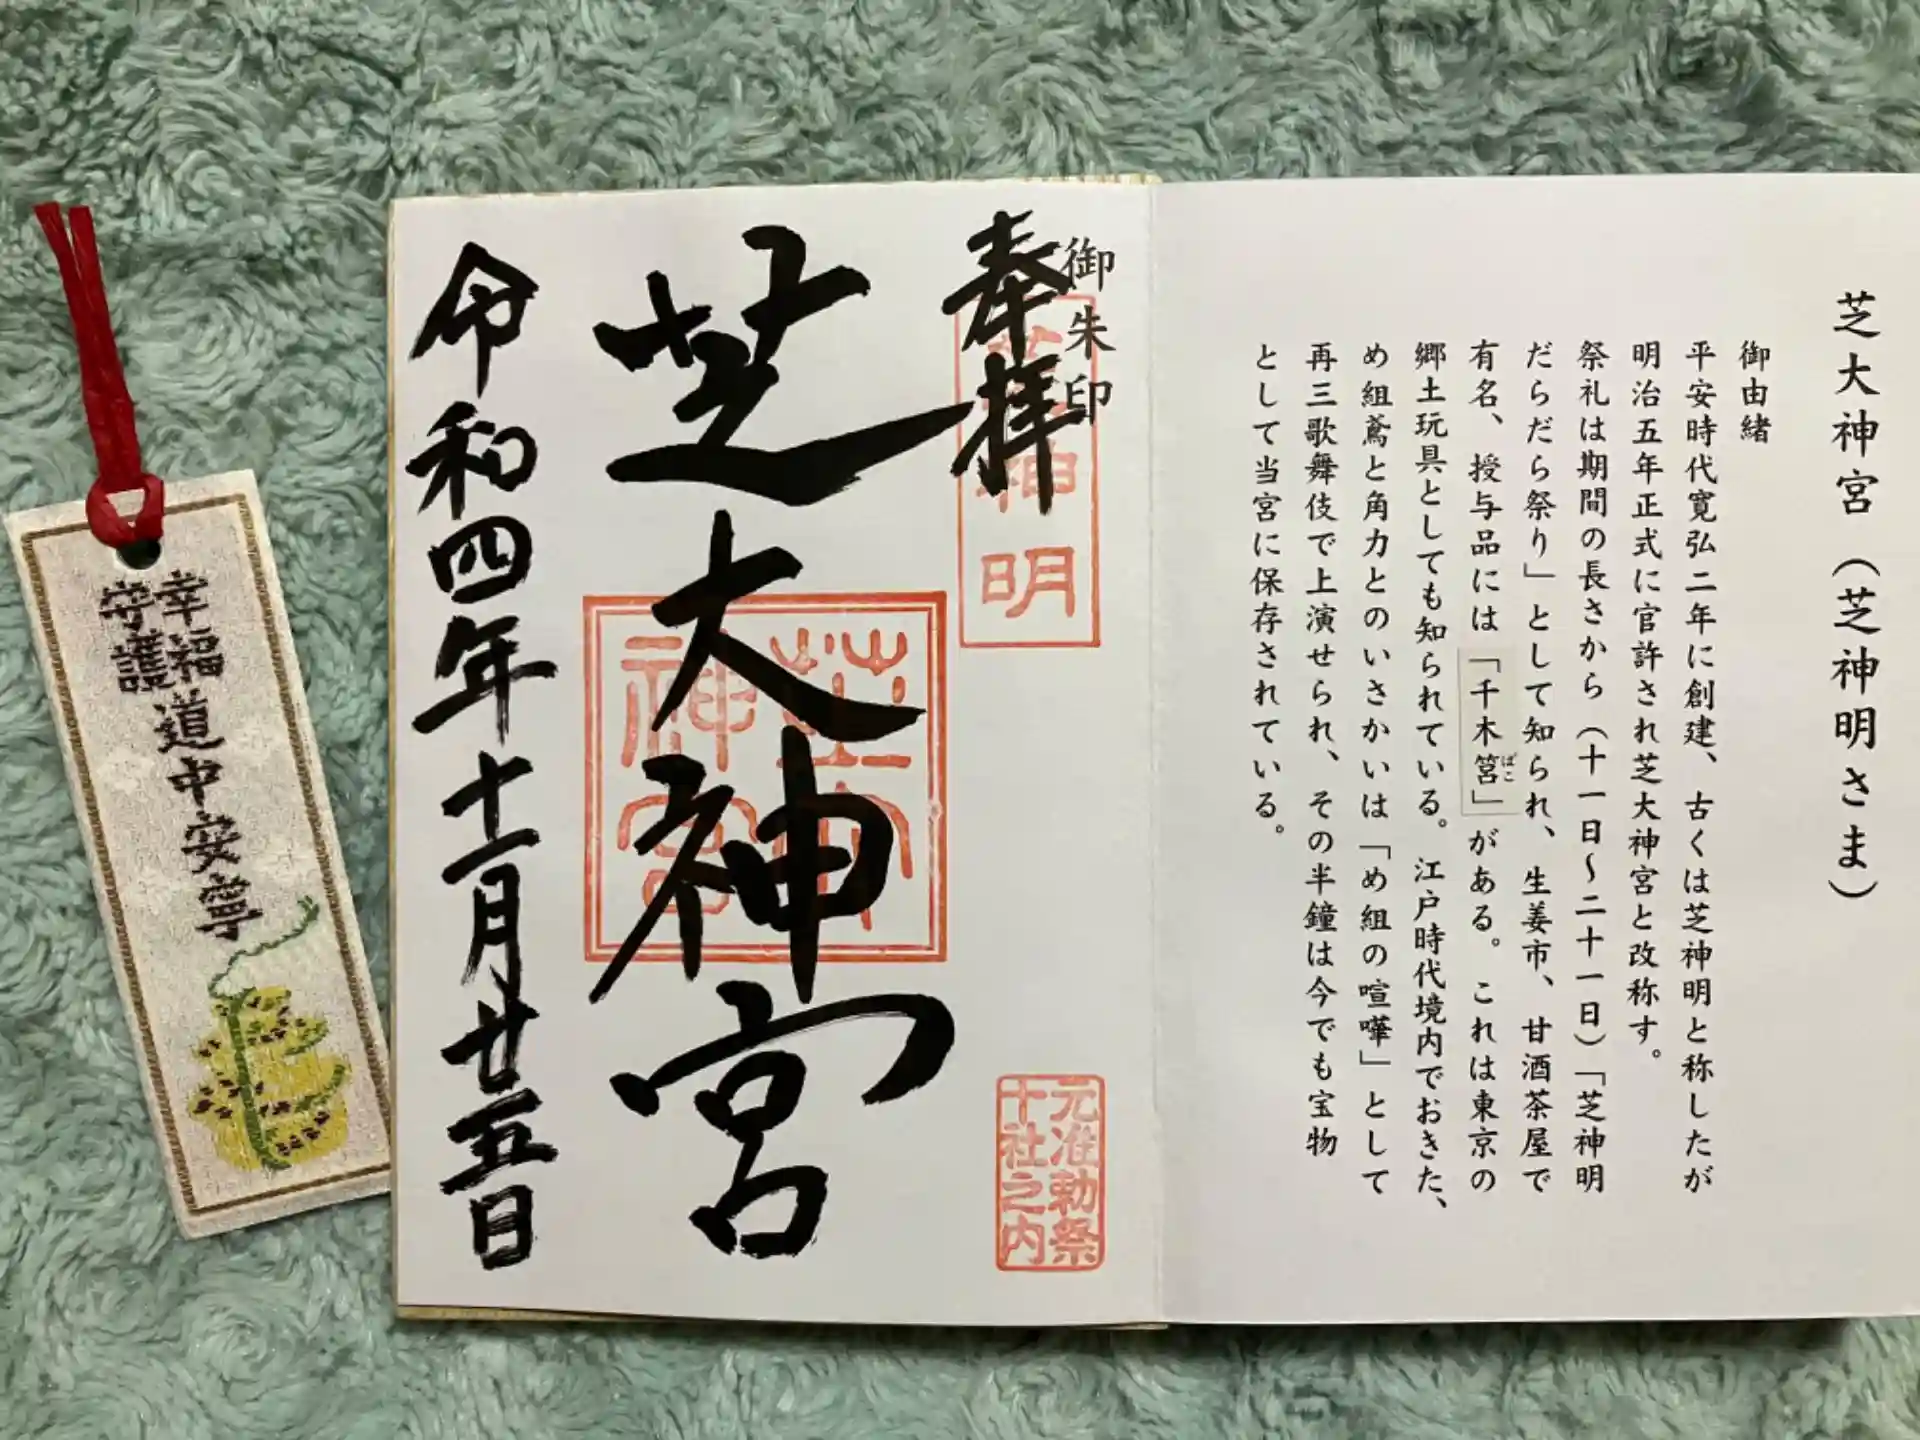 芝大神宮（芝神明さま）
御由緒
平安時代寛弘二年に創建、古くは芝神明と称したが
明治五年正式に官許され芝大神宮と改称す。
祭礼は期間の長さから（十一日～二十一日）「芝神明
だらだら祭り」として知られ、生姜市、甘酒茶屋で
有名、授与品には「千木筥」がある。これは東京の
ばこ
郷土玩具としても知られている。江戸時代境内でおきた、
め組鳶と角力とのいさかいは「め組の喧嘩」として
再三歌舞伎で上演せられ、その半鐘は今でも宝物
として当宮に保存されている。
御朱印
奉拝
芝神明
元准勅祭
十社之内
芝大神宮
芝大
神宮
令和四年十一月廿五日
幸福
守護
道中安寧